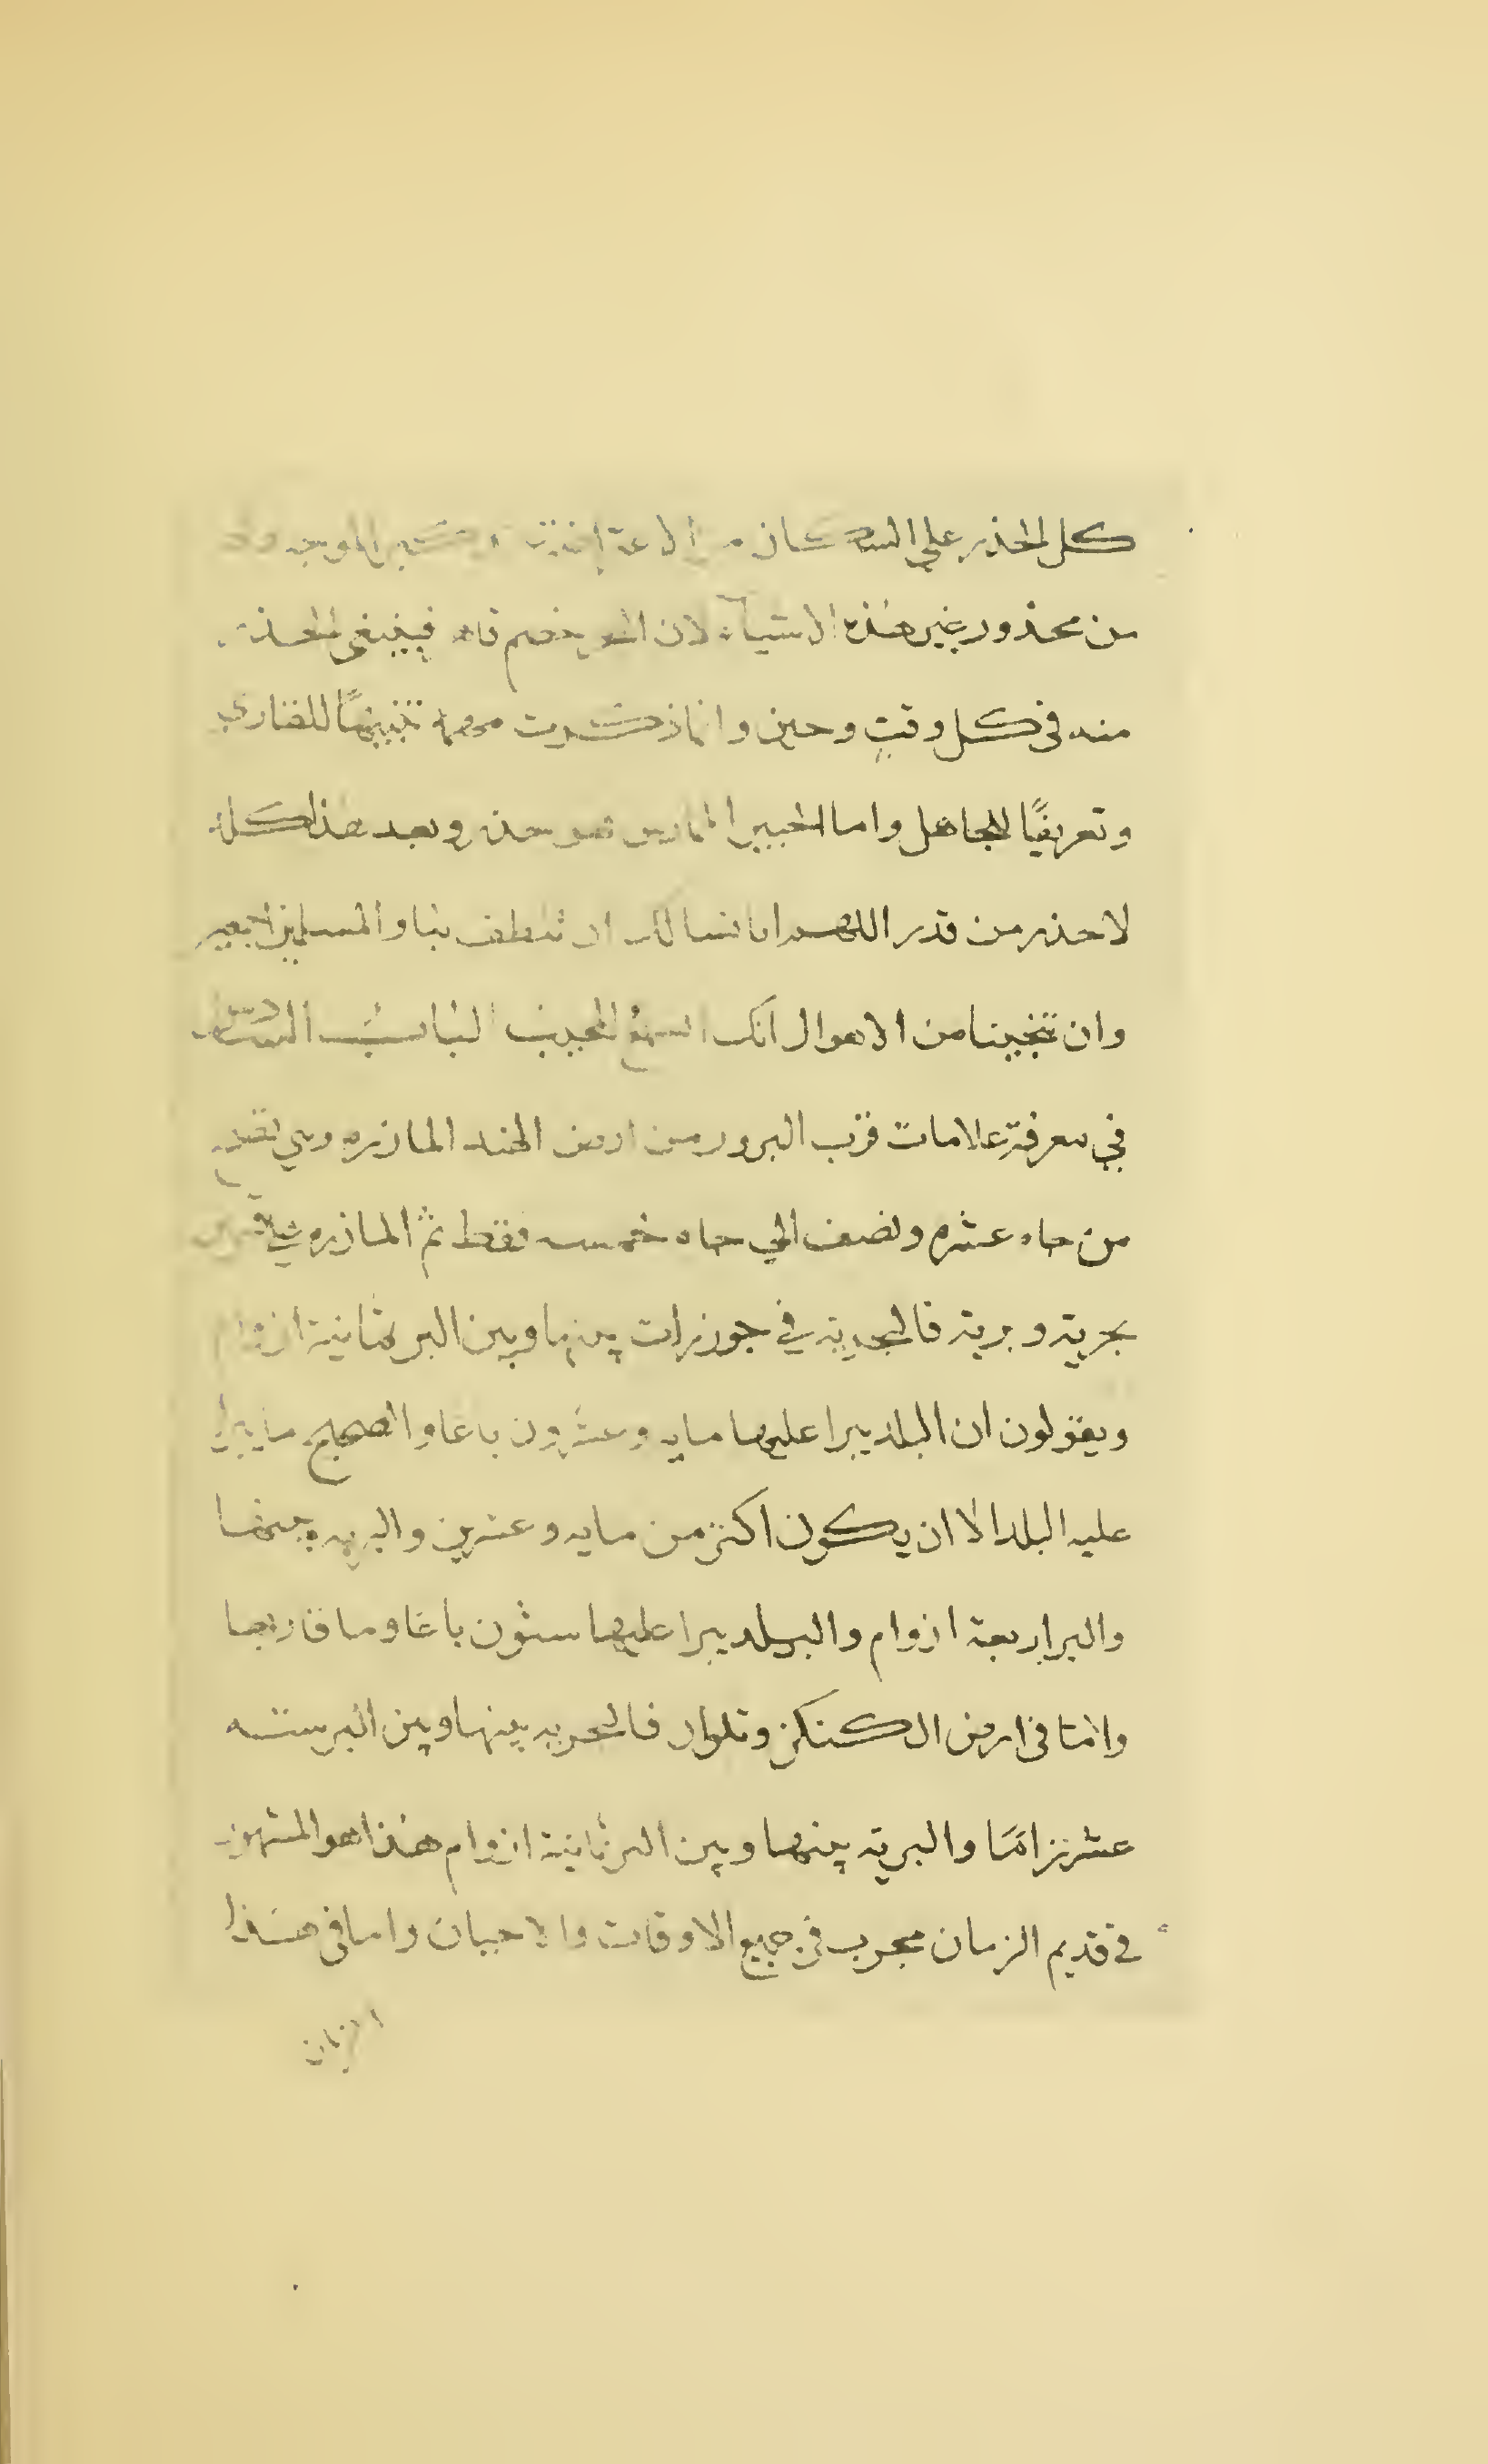 كل الحذر علي السكان
من محذور غير هذه الاشياء لان البحر فينبغي الحذر
منه في كل وقتٍ وحين وانما ذكرت تنبيهًا للقاري
وتعريفًا للجاهل واما الخبير الممارس حذر وبعد هذا كله
لا حذر من قدر اللهم انا نسالك ان تلطف بنا والمسلمين
وان تنجينا من الاهوال انك السميع المجيب الباب
في معرفة علامات قرب البرور من ارض الهند المازره وهي
من جاه عشره ونصف الي جاه خمسه فقط ثم المازره
بحرية وبرية فالبحرية في جوزرات بينها وبين البر ثمانية ازوام
ويقولون ان البلد يبرا عليها مايه وعشرون باعا والصحيح ما يبرا
عليه البلد الا ان يكون اكثر من مايه وعشرين والبريه بينها
والبر اربعة ازوام والبلد يبرا عليها ستون باعًا وما قاربها
وامّا في ارض الكنكن وتلوان فالبحريه بينها وبين البر سته
عشر زامًا والبرية بينها وبين البر ثمانية ازوام هذا هو المشهور
في قديم الزمان مجرب في جميع الاوقات والاحيان واما في هذا
الزمان